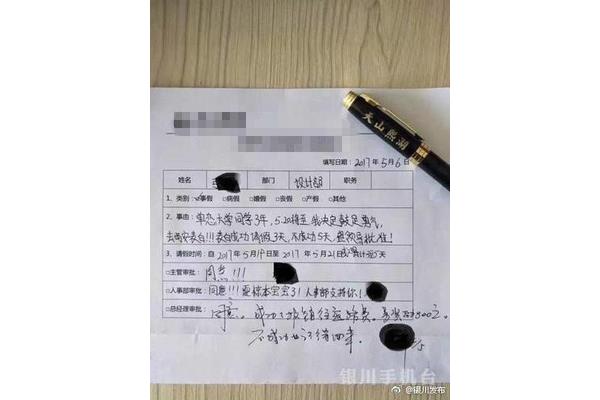 天山熙湖
填写日期：2017年5月6日
姓名 部门 设计部 职务
1、类别：☑事假 □病假 □婚假 □丧假 □产假 □其他
2、事由：单恋大学同学3年，5.20将至 我决定鼓足勇气，
去西安表白!!!表白成功请假3天，不成功5天，恳领导批准！
3、请假时间：自2017年5月19日至2017年5月21日 累计 天
□主管审批：同意!!!
□人事部审批：同意!!! 要你本宝宝3！人事部支持你！
□总经理审批：同意。成功了报销往返路费。 500元。
不成功
银川手机台
@银川发布